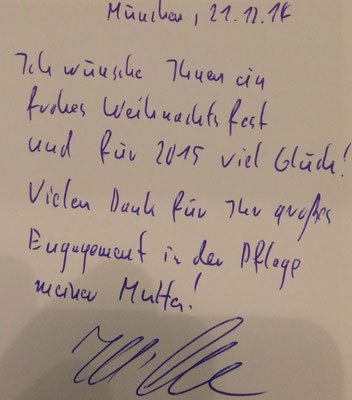 München, 21.12.14
Ich wünsche Ihnen ein
frohes Weihnachtsfest
und für 2015 viel Glück!
Vielen Dank für Ihr großes
Engagement in der Pflege
meiner Mutter!